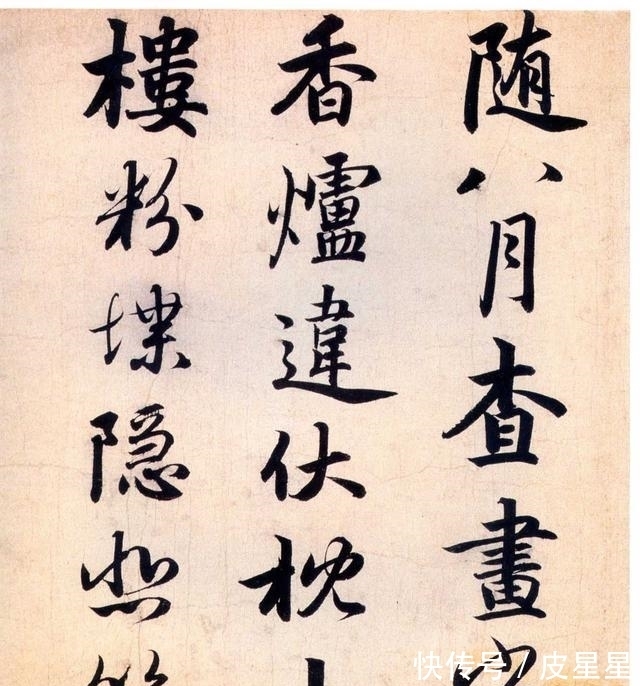 随八月查畫
香爐違伏枕
樓粉堞隐悲
快传号 / 皮星星